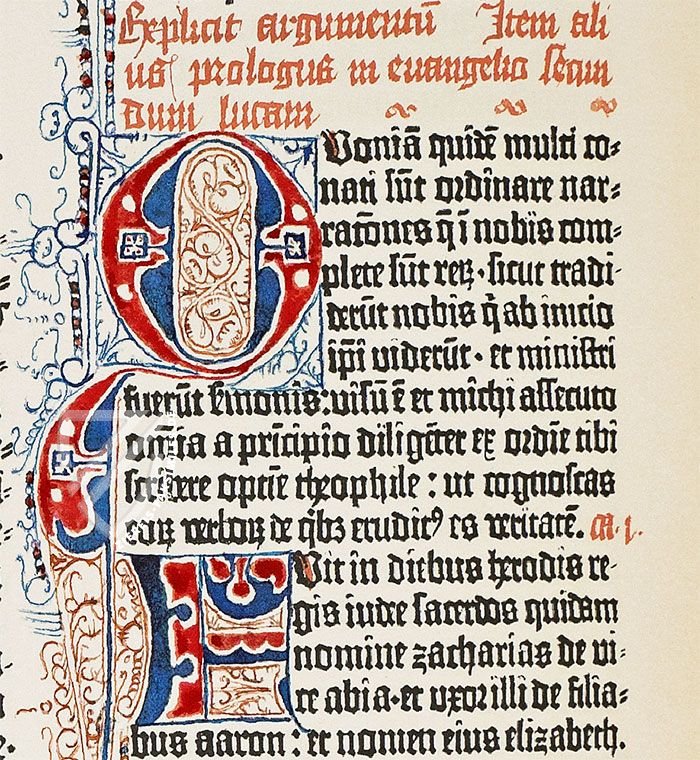 Explicit argumentū Item ali
us prologus in euangelio secun
dum lucam
Quoniā quidē multi co-
nati sūt ordinare nar-
racōnes q̄ ī nobis com-
plete sūt reꝝ · sicut tradi-
derūt nobis q̄ ab inicio
ip̄i viderūt · et ministri
fuerūt s̄monis : visū ē et michi assecuto
om̄ia a prīcipio diligēter ex ordīe tibi
scribere optīe theophile : ut cognoscas
eoꝝ verboꝝ de qⁱbꝫ eruditꝰ es veritatē. Ca. i.
Fuit in diebus herodis re-
gis iudee sacerdos quidam
nomine zacharias de vi-
ce abia · et uxor illi de filia-
bus aaron : et nomen eius elizabeth.